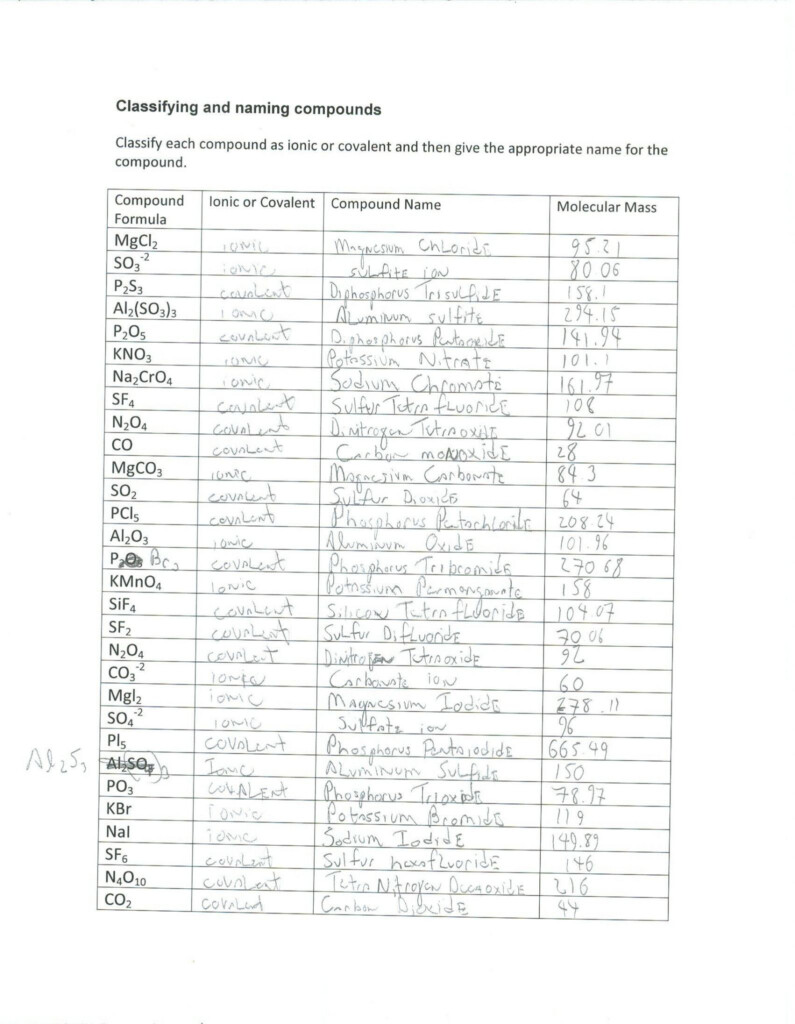 Classifying and naming compounds
Classify each compound as ionic or covalent and then give the appropriate name for the
compound.
Compound Formula | Ionic or Covalent | Compound Name | Molecular Mass
MgCl₂ ionic Magnesium Chloride 95.21
SO₃⁻² ionic sulfite ion 80.06
P₂S₃ covalent Diphosphorus Trisulfide 158.1
Al₂(SO₃)₃ ionic Aluminum sulfite 294.15
P₂O₅ covalent Diphosphorus Pentaoxide 141.94
KNO₃ ionic Potassium Nitrate 101.1
Na₂CrO₄ ionic Sodium Chromate 161.97
SF₄ covalent Sulfur Tetrafluoride 108
N₂O₄ covalent Dinitrogen Tetraoxide 92.01
CO covalent Carbon monoxide 28
MgCO₃ ionic Magnesium Carbonate 84.3
SO₂ covalent Sulfur Dioxide 64
PCl₅ covalent Phosphorus Pentachloride 208.24
Al₂O₃ ionic Aluminum Oxide 101.96
P Br₃ covalent Phosphorus Tribromide 270.68
KMnO₄ ionic Potassium Permanganate 158
SiF₄ covalent Silicon Tetrafluoride 104.07
SF₂ covalent Sulfur Difluoride 70.06
N₂O₄ covalent Dinitrogen Tetraoxide 92
CO₃⁻² ionic Carbonate ion 60
MgI₂ ionic Magnesium Iodide 278.11
SO₄⁻² ionic Sulfate ion 96
PI₅ covalent Phosphorus Pentaiodide 665.49
Al₂S₃ Ionic Aluminum Sulfide 150
PO₃ covalent Phosphorus Trioxide 78.97
KBr Ionic Potassium Bromide 119
NaI ionic Sodium Iodide 149.89
SF₆ covalent Sulfur hexafluoride 146
N₄O₁₀ covalent Tetra Nitrogen Decaoxide 216
CO₂ covalent Carbon Dioxide 44